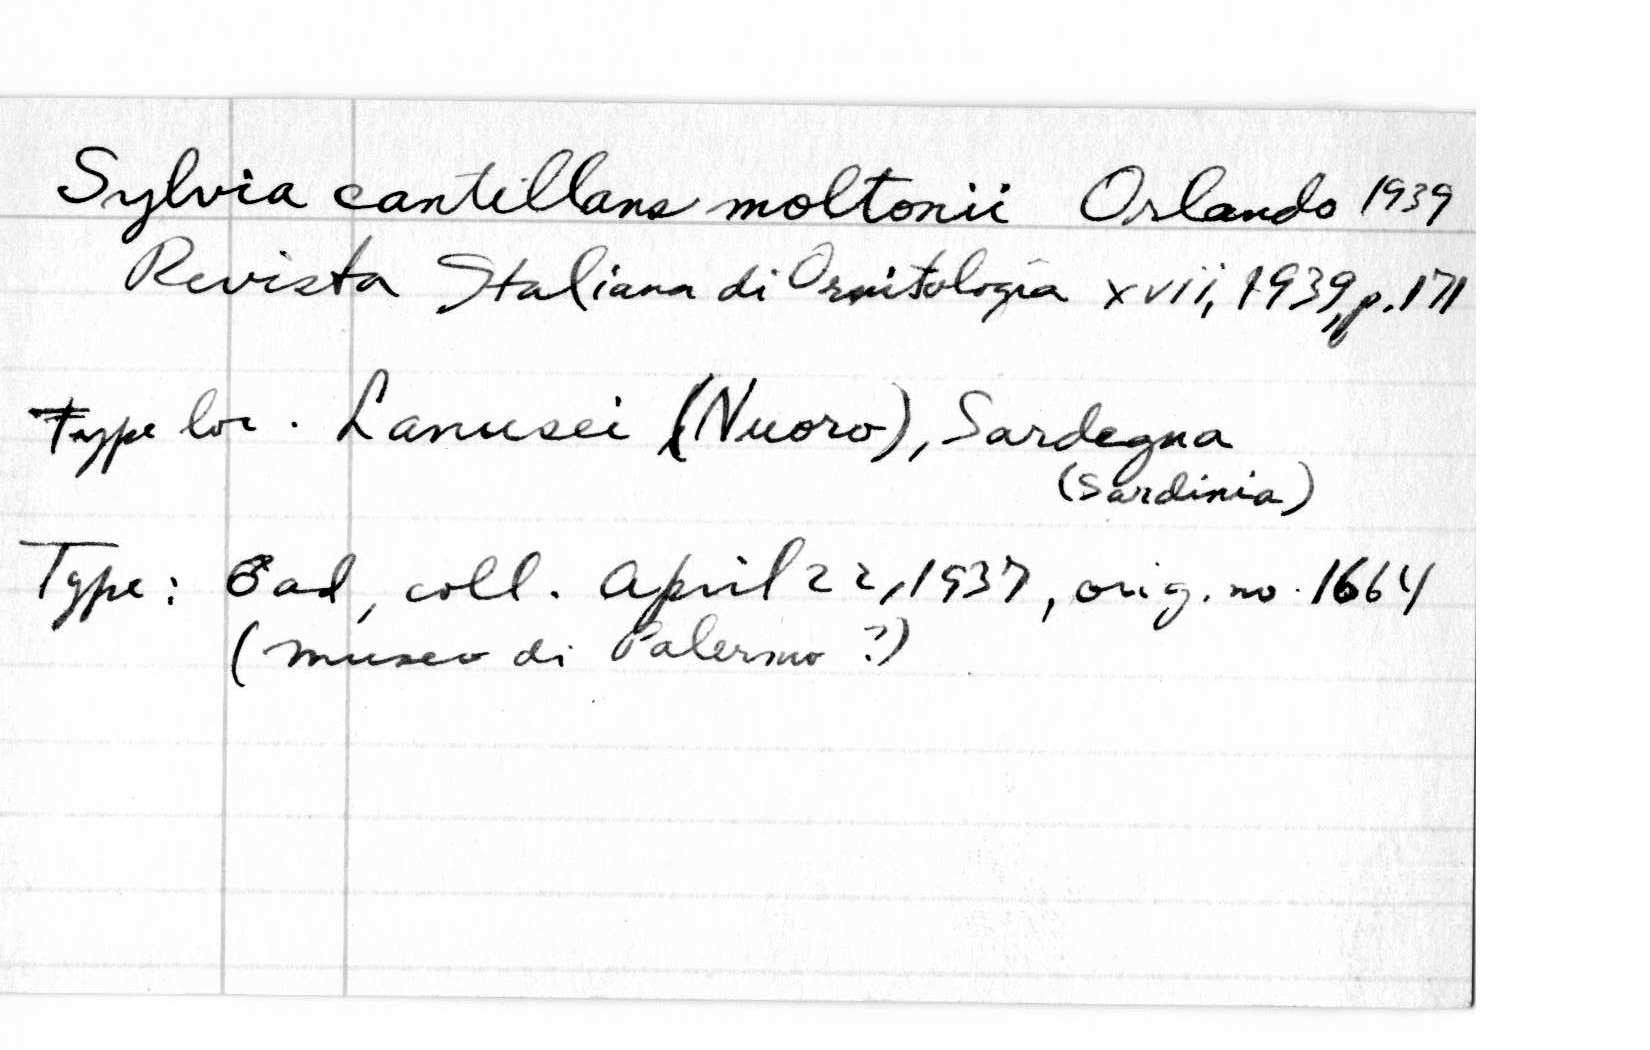 Sylvia cantillans moltonii Orlando 1939
Revista Italiana di Ornitologia xvii, 1939, p. 171
Type loc. Lanusei (Nuoro), Sardegna
(Sardinia)
Type: ♂ ad, coll. April 22, 1937, orig. no. 1664
(museo di Palermo ?)